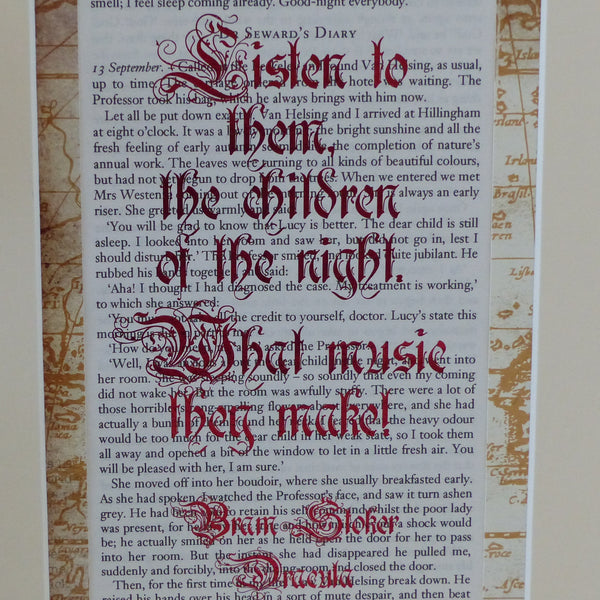 Listen to
them,
the children
of the night.
What music
they make!
Bram Stoker
Dracula
smell; I feel sleep coming already. Good-night everybody.
Dr Seward's Diary
13 September. – Called at the Berkeley and found Van Helsing, as usual,
up to time. The carriage ordered from the hotel was waiting. The
Professor took his bag, which he always brings with him now.
Let all be put down exactly. Van Helsing and I arrived at Hillingham
at eight o'clock. It was a lovely morning; the bright sunshine and all the
fresh feeling of early autumn seemed like the completion of nature's
annual work. The leaves were turning to all kinds of beautiful colours,
but had not yet begun to drop from the trees. When we entered we met
Mrs Westenra coming out of the morning room. She is always an early
riser. She greeted us warmly and said:
'You will be glad to know that Lucy is better. The dear child is still
asleep. I looked into her room and saw her, but did not go in, lest I
should disturb her.' The Professor smiled, and looked quite jubilant. He
rubbed his hands together, and said:
'Aha! I thought I had diagnosed the case. My treatment is working,'
to which she answered:
'You must not take all the credit to yourself, doctor. Lucy's state this
morning is due in part to me.'
'How do you mean, ma'am?' asked the Professor.
'Well, I was anxious about the dear child in the night, and went into
her room. She was sleeping soundly – so soundly that even my coming
did not wake her. But the room was awfully stuffy. There were a lot of
those horrible, strong-smelling flowers about everywhere, and she had
actually a bunch of them round her neck. I feared that the heavy odour
would be too much for the dear child in her weak state, so I took them
all away and opened a bit of the window to let in a little fresh air. You
will be pleased with her, I am sure.'
She moved off into her boudoir, where she usually breakfasted early.
As she had spoken, I watched the Professor's face, and saw it turn ashen
grey. He had been able to retain his self-command whilst the poor lady
was present, for he knew her state and how mischievous a shock would
be; he actually smiled on her as he held open the door for her to pass
into her room. But the instant she had disappeared he pulled me,
suddenly and forcibly, into the dining-room and closed the door.
Then, for the first time in my life, I saw Van Helsing break down. He
raised his hands over his head in a sort of mute despair, and then beat